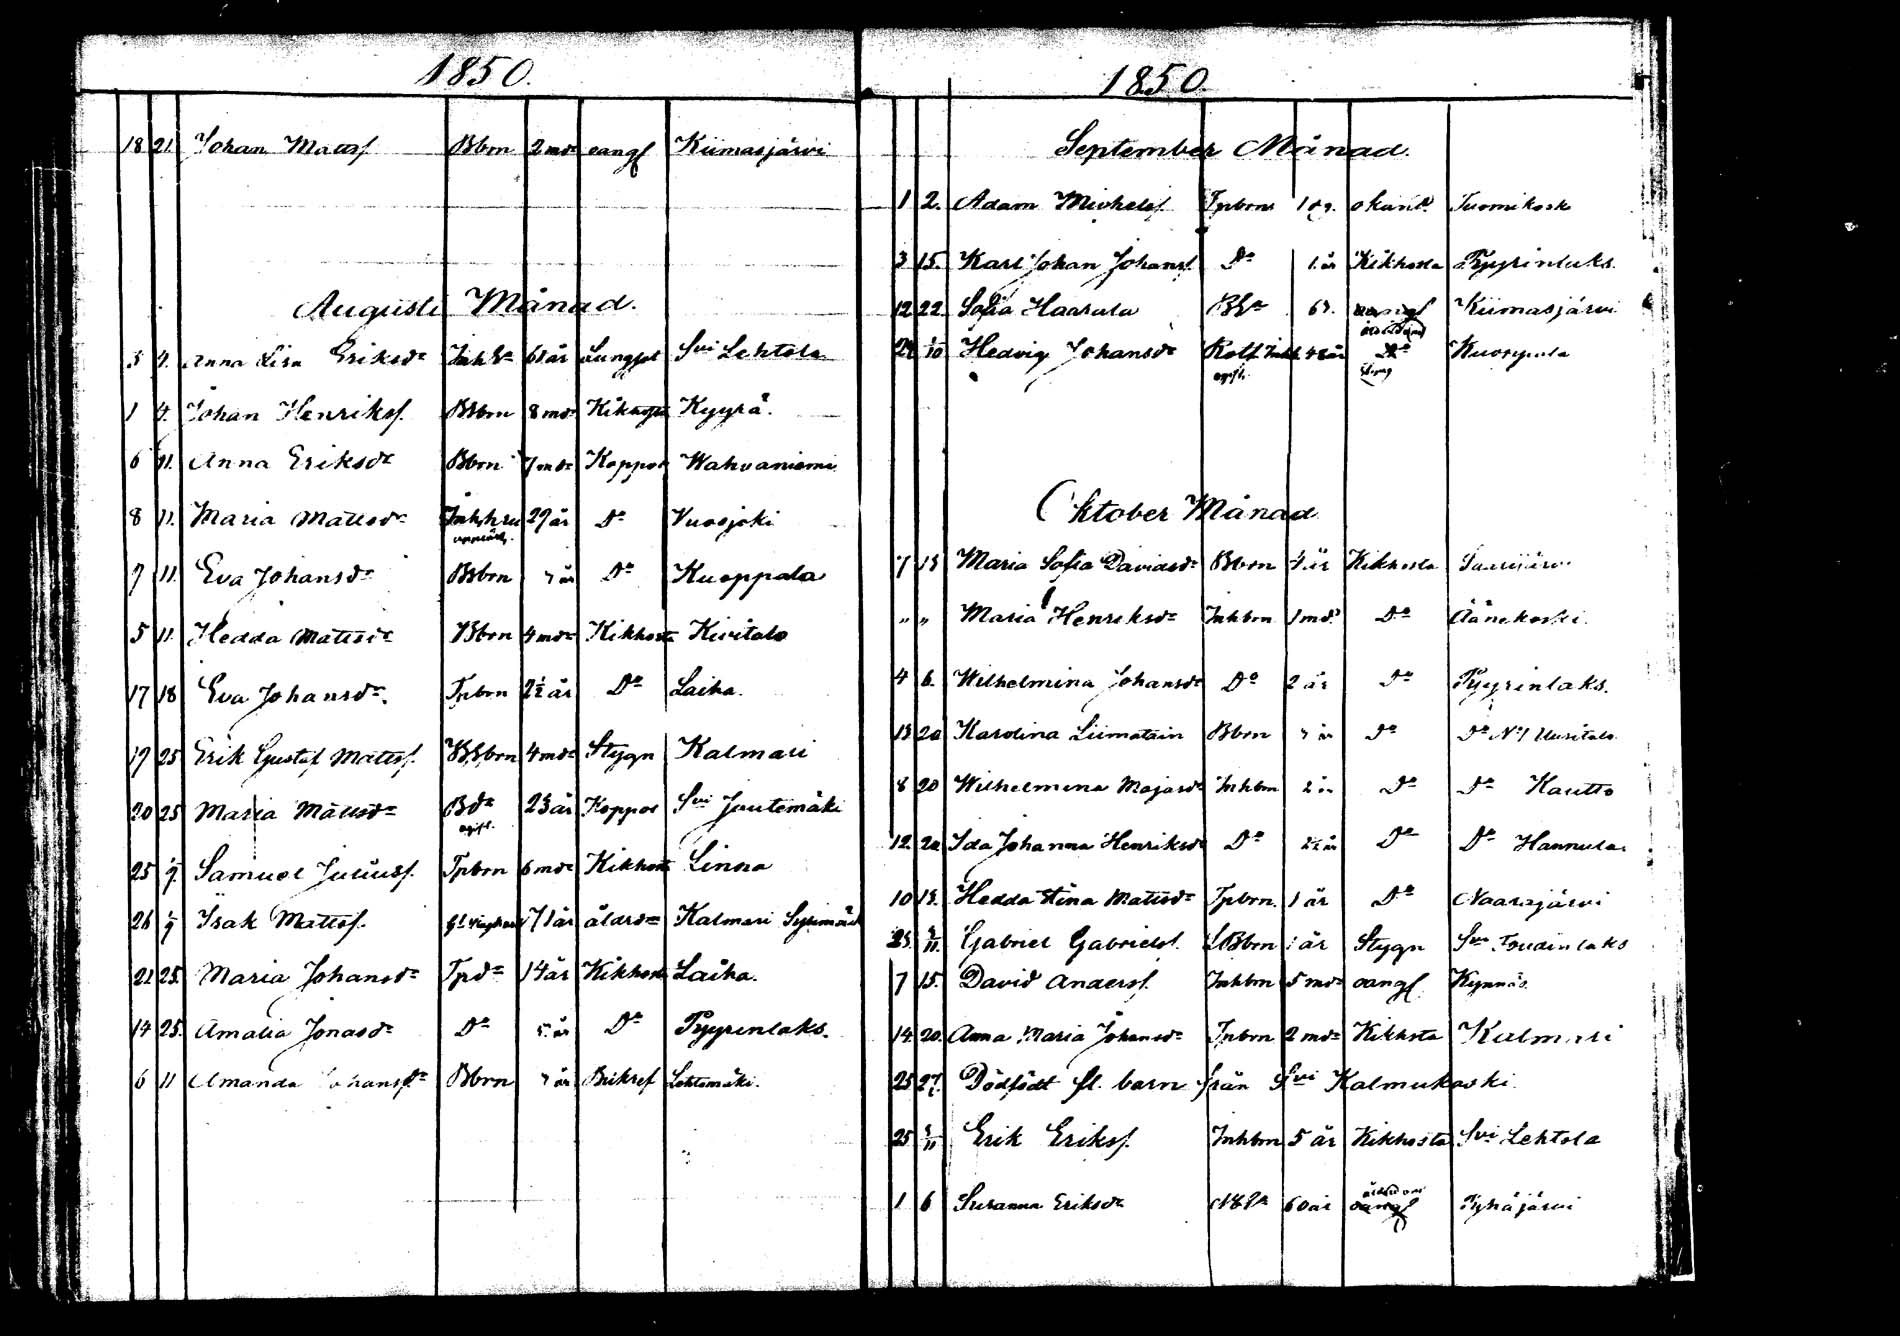 1850.
18 21. Johan Matts. Bbrn 2 mdr oangf Kiimasjärvi
Augusti Månad.
3 4. Anna Lisa Eriksdr InhEa 61 år Lungsot Sui Lehtola
1 4. Johan Henriks. Bbrn 8 mdr Kikhosta Kyyrä.
6 11. Anna Eriksdr Bbrn 7 mdr Koppor Wahvaniemi
8 11. Maria Mattsdr Inh.hru 29 år Do Vuosjoki
7 11. Eva Johansdr Bbrn 7 år Do Kuoppala
5 11. Hedda Mattsdr Bbrn 4 mdr Kikhosta Kivitalo
17 18 Eva Johansdr. Tpbrn 2½ år Do Laiha.
17 25 Erik Gustaf Matts. Bbrn 4 mdr Stygn Kalmari
20 25 Maria Mattsdr Bdr ogift. 23 år Koppor Sui Juutemäki
25 1/9. Samuel Julius. Tpbrn 6 mdr Kikhosta Linna
26 1/9 Isak Matts. 71 år åldrdm Kalmari
21 25. Maria Johansdr Tpdr 14 år Kikhosta Laiha.
14 25. Amalia Jonasdr Do 5 år Do Pyyrinlaks.
6 11 Amanda Johansdr Bbrn 7 år Lehtomäki.
1850.
September Månad.
1 2. Adam Michels. Tpbrn okänd. Tuomikosk
3 15. Karl Johan Johans. Do 1 år Kikhosta Pyyrinlaks.
12 22 Sofia Haarala oangf Kiimasjärvi
24 1/10 Hedvig Johansdr ogft. Do Kuoppala
Oktober Månad
7 13 Maria Sofia Davidsdr Bbrn 4 år Kikhosta Saarijärvi
" " Maria Henriksdr Inhbrn 1 md. Do Äänekoski.
4 6. Wilhelmina Johansdr Do 2 år Do Pyyrinlaks.
13 20 Karolina Liimatain Bbrn 7 år Do Do No 1 Uusitalo
8 20 Wilhelmina Majasdr Inhbrn 2 år Do Do Kautto
12 20 Ida Johanna Henriksdr Do 2½ år Do Do Hannula
10 13. Hedda Stina Mattsdr Tpbrn. 1 år Do Naarajärvi
25. 3/11 Gabriel Gabriels. Bbrn 1 år Stygn Sui
7 15. David Anders. Inhbrn 5 mdr oangf Kynnäs
14 20. Anna Maria Johansdr Tpbrn 2 mdr Kikhosta Kalmari
25 27. Dödfödt fl. barn från Sui Kalmukoski.
25 3/11 Erik Eriks. Inhbrn 5 år Kikhosta Sui Lehtola
1 6 Susanna Eriksdr 60 år oangf Pyhäjärvi